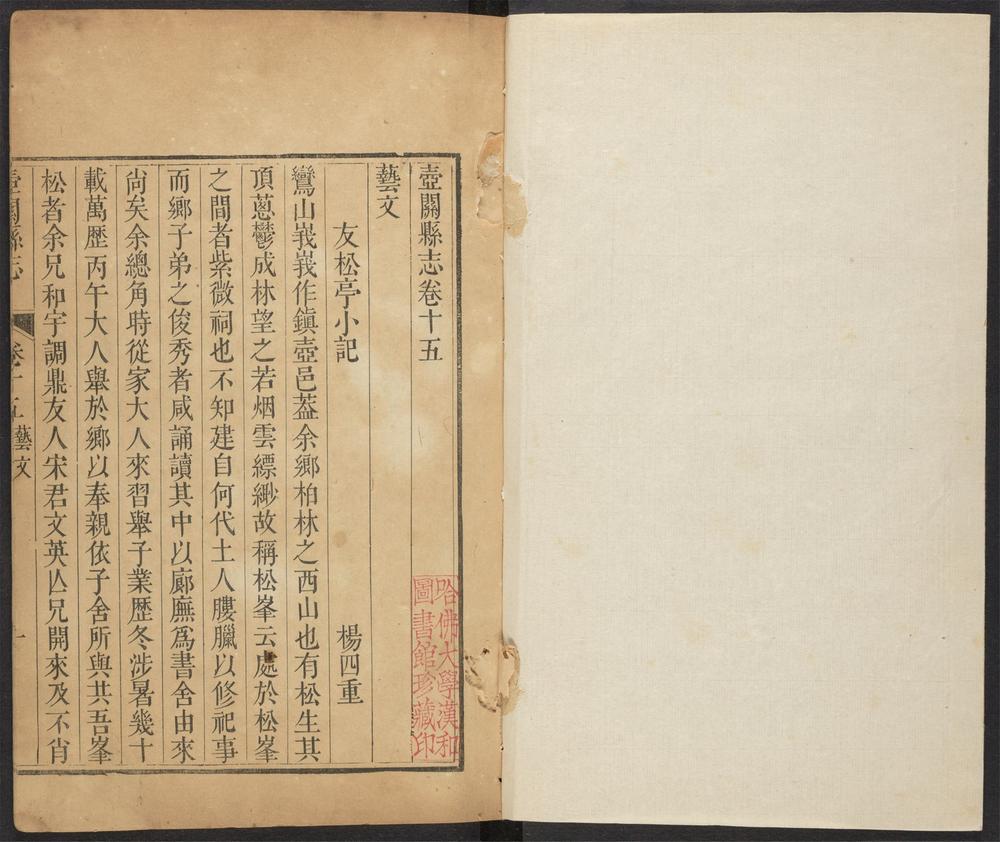 壺關縣志卷十五
藝文
友松亭小記 楊四重
鸞山峩峩作鎮壺邑葢余鄉柏林之西山也有松生其
頂蔥鬱成林望之若烟雲縹緲故稱松峯云處於松峯
之間者紫微祠也不知建自何代土人膢臘以修祀事
而鄉子弟之俊秀者咸誦讀其中以廊廡爲書舍由來
尚矣余總角時從家大人來習舉子業歷冬涉暑幾十
載萬歷丙午大人舉於鄉以奉親依子舍所與共吾峯
松者余兄和宇調鼎友人宋君文英亾兄開來及不肖
壺關縣志 卷十五 藝文 一
哈佛大學漢和
圖書館珍藏印